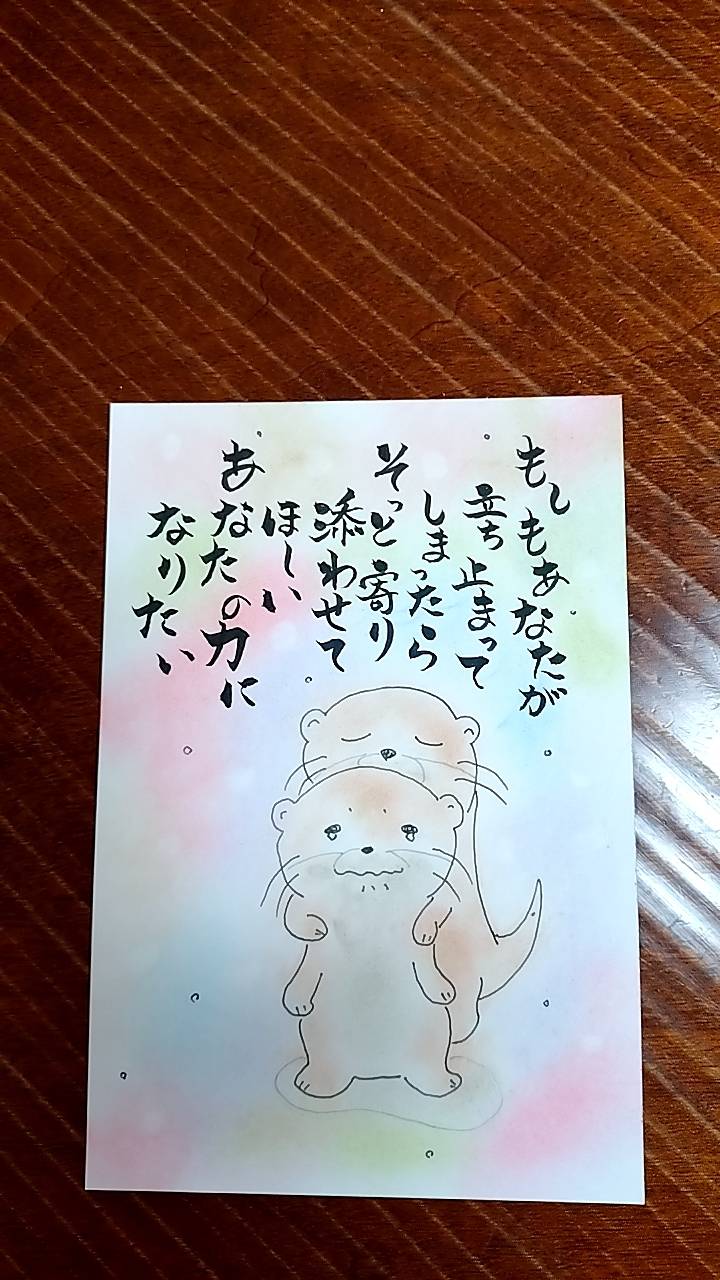 もしもあなたが
立ち止まって
しまったら
そっと寄り
添わせて
ほしい
あなたの力に
なりたい